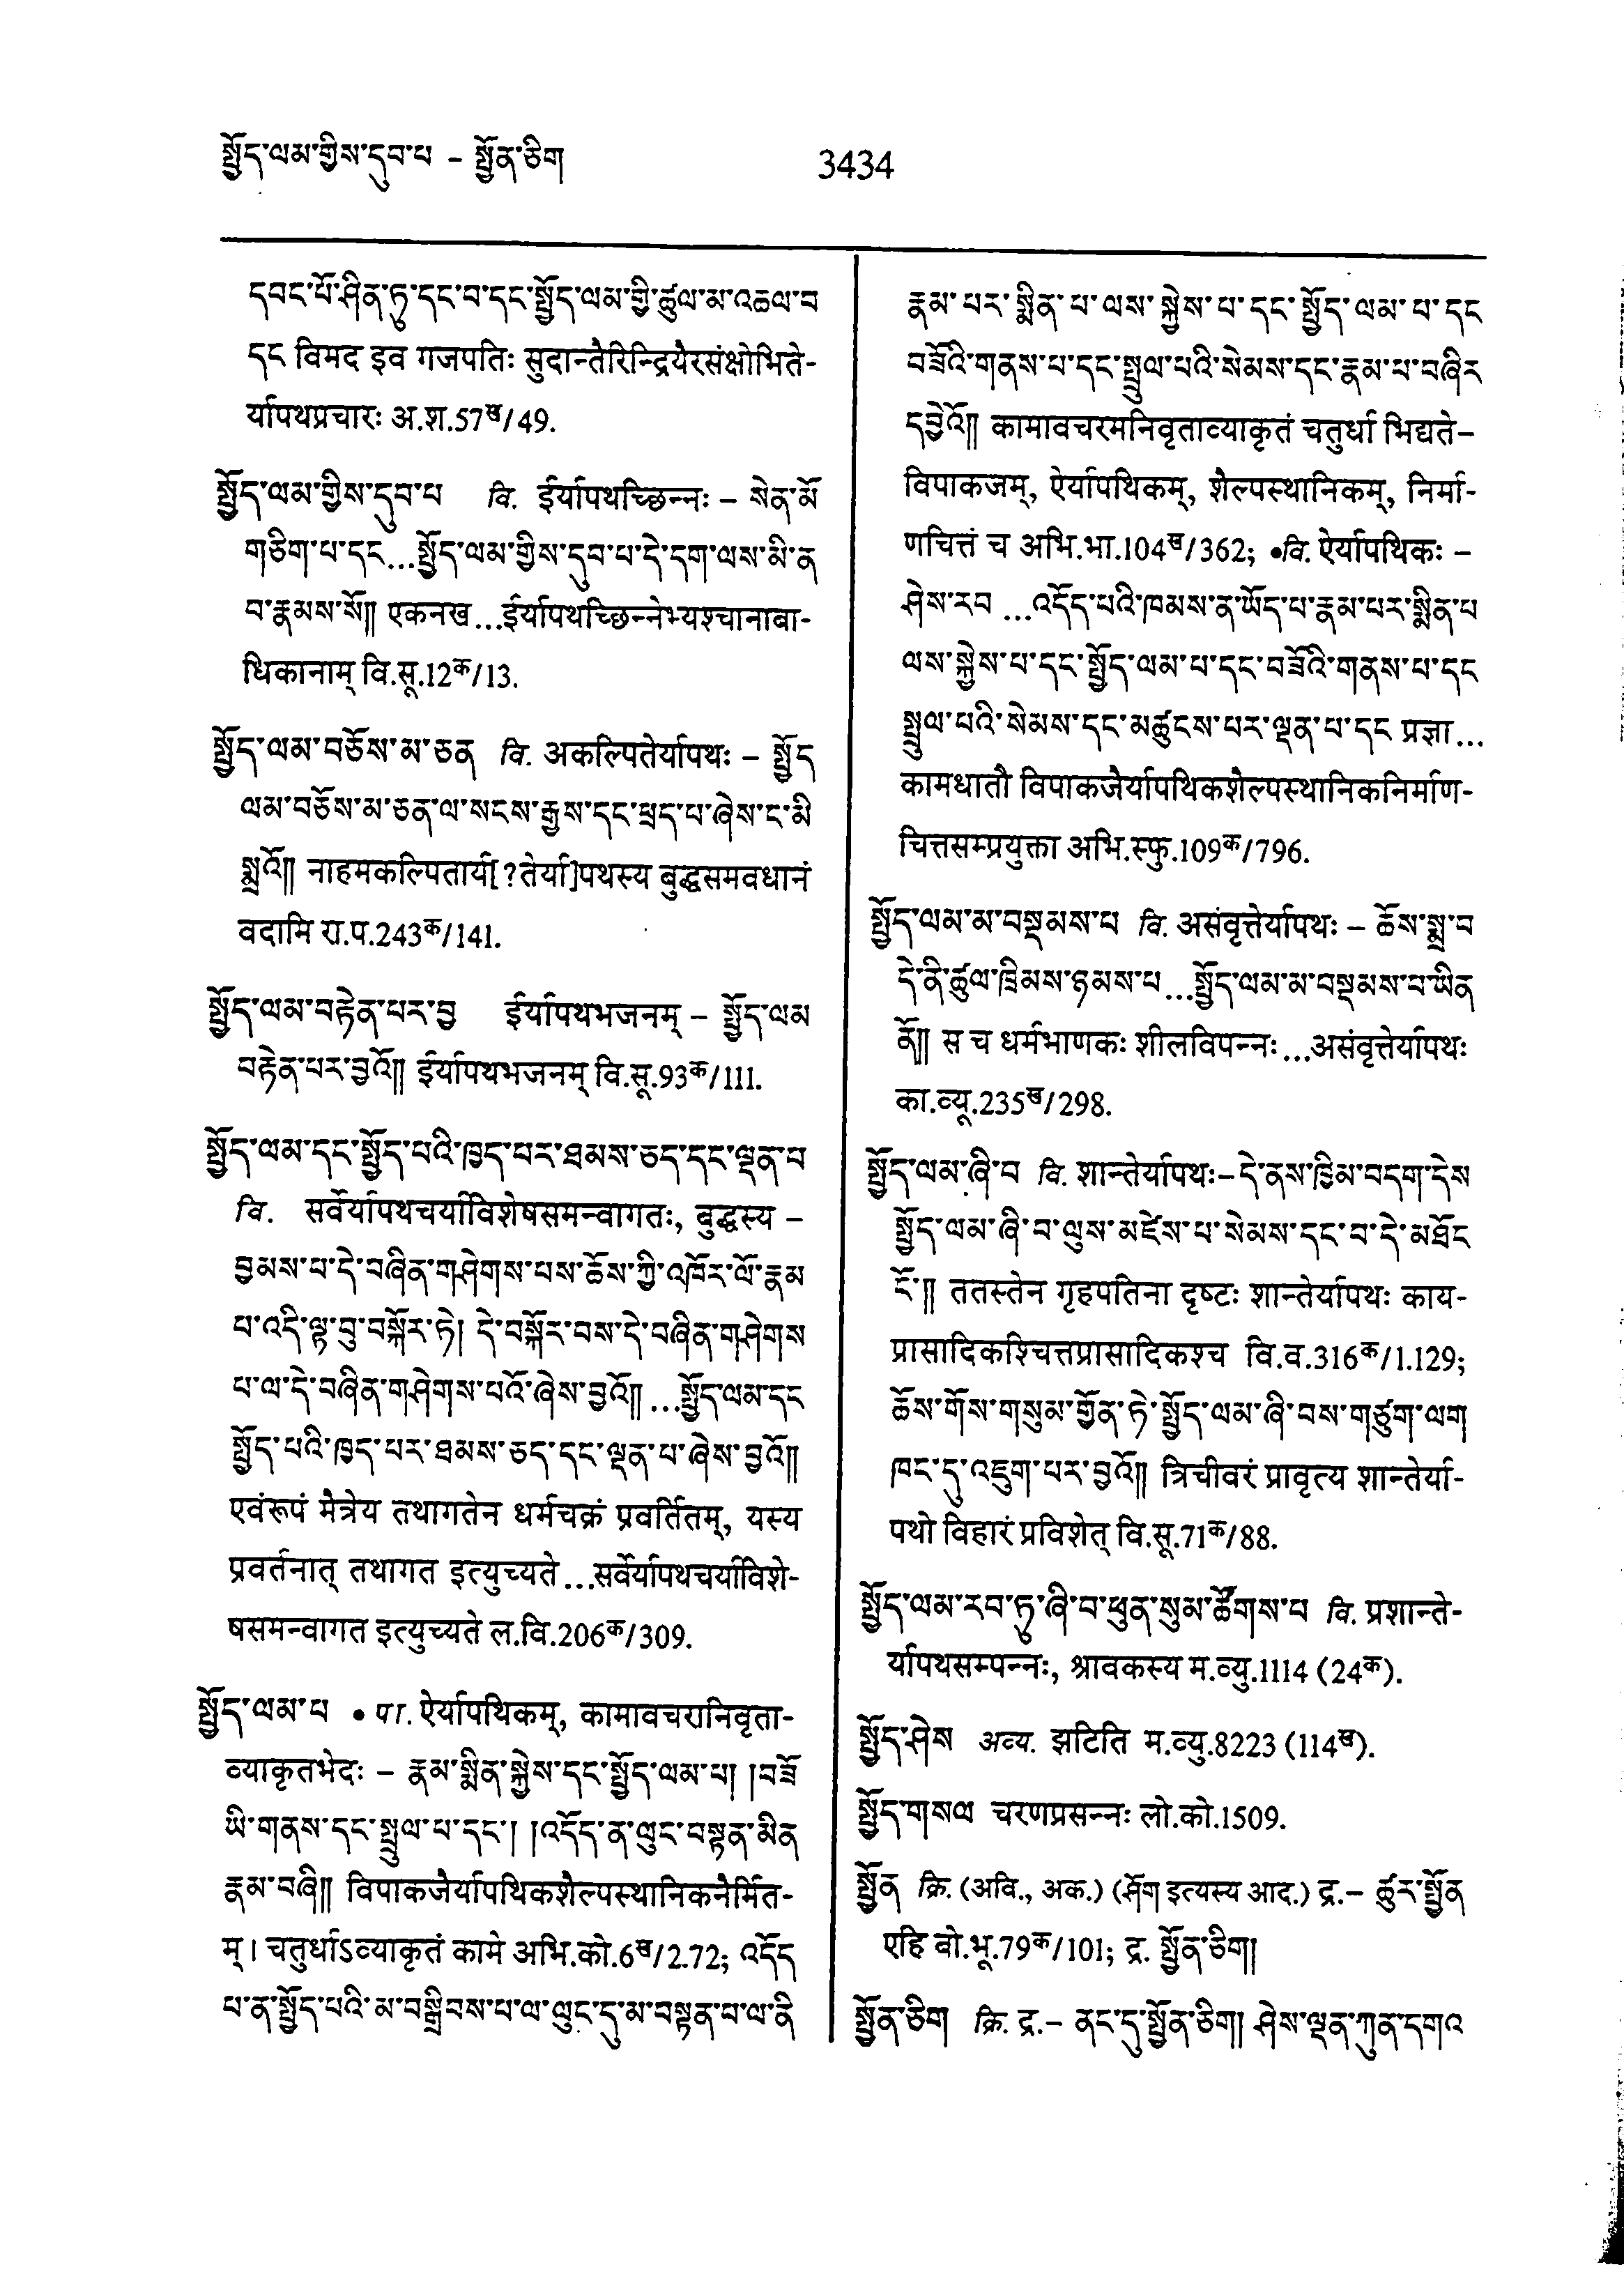 སྤྱོད་ལམ་གྱིས་དུབ་པ – སྤྱོན་ཅིག
3434
དབང་པོ་ཤིན་ཏུ་དང་བ་དང་སྤྱོད་ལམ་གྱི་ཚུལ་མ་འཆལ་བ
དང विमद इव गजपतिः सुदान्तैरिन्द्रियैरसंक्षोभिते-
र्यापथप्रचारः अ.श.57ख/49.
སྤྱོད་ལམ་གྱིས་དུབ་པ वि. ईर्यापथच्छिन्नः – སེན་མོ
གཅིག་པ་དང...སྤྱོད་ལམ་གྱིས་དུབ་པ་དེ་དག་ལས་མི་ན
བ་རྣམས་སོ།། एकनख...ईर्यापथच्छिन्नेभ्यश्चानाबा-
धिकानाम् वि.सू.12क/13.
སྤྱོད་ལམ་བཅོས་མ་ཅན वि. अकल्पितेर्यापथः – སྤྱོད
ལམ་བཅོས་མ་ཅན་ལ་སངས་རྒྱས་དང་ཕྲད་པ་ཞེས་ང་མི
སྨྲའོ།། नाहमकल्पितार्या[?तेर्या]पथस्य बुद्धसमवधानं
वदामि रा.प.243क/141.
སྤྱོད་ལམ་བརྟེན་པར་བྱ ईर्यापथभजनम् – སྤྱོད་ལམ
བརྟེན་པར་བྱའོ།། ईर्यापथभजनम् वि.सू.93क/111.
སྤྱོད་ལམ་དང་སྤྱོད་པའི་ཁྱད་པར་ཐམས་ཅད་དང་ལྡན་པ
वि. सर्वेर्यापथचर्याविशेषसमन्वागतः, बुद्धस्य –
བྱམས་པ་དེ་བཞིན་གཤེགས་པས་ཆོས་ཀྱི་འཁོར་ལོ་རྣམ
པ་འདི་ལྟ་བུ་བསྐོར་ཏེ། དེ་བསྐོར་བས་དེ་བཞིན་གཤེགས
པ་ལ་དེ་བཞིན་གཤེགས་པའོ་ཞེས་བྱའོ།།...སྤྱོད་ལམ་དང
སྤྱོད་པའི་ཁྱད་པར་ཐམས་ཅད་དང་ལྡན་པ་ཞེས་བྱའོ།།
एवंरूपं मैत्रेय तथागतेन धर्मचक्रं प्रवर्तितम्, यस्य
प्रवर्तनात् तथागत इत्युच्यते...सर्वेर्यापथचर्याविशे-
षसमन्वागत इत्युच्यते ल.वि.206क/309.
སྤྱོད་ལམ་པ • पा. ऐर्यापथिकम्, कामावचरानिवृता-
व्याकृतभेदः – རྣམ་སྨིན་སྐྱེས་དང་སྤྱོད་ལམ་པ། །བཟོ
ཡི་གནས་དང་སྤྲུལ་པ་དང་། །འདོད་ན་ལུང་བསྟན་མིན
རྣམ་བཞི།། विपाकजैर्यापथिकशैल्पस्थानिकनैर्मित-
म्। चतुर्धाऽव्याकृतं कामे अभि.को.6ख/2.72; འདོད
པ་ན་སྤྱོད་པའི་མ་བསྒྲིབས་པ་ལ་ལུང་དུ་མ་བསྟན་པ་ལ་ནི
རྣམ་པར་སྨིན་པ་ལས་སྐྱེས་པ་དང་སྤྱོད་ལམ་པ་དང
བཟོའི་གནས་པ་དང་སྤྲུལ་པའི་སེམས་དང་རྣམ་པ་བཞིར
དབྱེའོ།། कामावचरमनिवृताव्याकृतं चतुर्धा भिद्यते–
विपाकजम्, ऐर्यापथिकम्, शैल्पस्थानिकम्, निर्मा-
णचित्तं च अभि.भा.104ख/362; •वि. ऐर्यापथिकः –
ཤེས་རབ...འདོད་པའི་ཁམས་ན་ཡོད་པ་རྣམ་པར་སྨིན་པ
ལས་སྐྱེས་པ་དང་སྤྱོད་ལམ་པ་དང་བཟོའི་གནས་པ་དང
སྤྲུལ་པའི་སེམས་དང་མཚུངས་པར་ལྡན་པ་དང प्रज्ञा...
कामधातौ विपाकजैर्यापथिकशैल्पस्थानिकनिर्माण-
चित्तसम्प्रयुक्ता अभि.स्फु.109क/796.
སྤྱོད་ལམ་མ་བསྡམས་པ वि. असंवृत्तेर्यापथः – ཆོས་སྨྲ་བ
དེ་ནི་ཚུལ་ཁྲིམས་ཉམས་པ...སྤྱོད་ལམ་མ་བསྡམས་པ་ཡིན
ནོ།། स च धर्मभाणकः शीलविपन्नः...असंवृत्तेर्यापथः
का.व्यू.235ख/298.
སྤྱོད་ལམ་ཞི་བ वि. शान्तेर्यापथः–དེ་ནས་ཁྱིམ་བདག་དེས
སྤྱོད་ལམ་ཞི་བ་ལུས་མཛེས་པ་སེམས་དང་བ་དེ་མཐོང
ངོ་།། ततस्तेन गृहपतिना दृष्टः शान्तेर्यापथः काय-
प्रासादिकश्चित्तप्रासादिकश्च वि.व.316क/1.129;
ཆོས་གོས་གསུམ་གྱོན་ཏེ་སྤྱོད་ལམ་ཞི་བས་གཙུག་ལག
ཁང་དུ་འཇུག་པར་བྱའོ།། त्रिचीवरं प्रावृत्य शान्तेर्या-
पथो विहारं प्रविशेत् वि.सू.71क/88.
སྤྱོད་ལམ་རབ་ཏུ་ཞི་བ་ཕུན་སུམ་ཚོགས་པ वि. प्रशान्ते-
र्यापथसम्पन्नः, श्रावकस्य म.व्यु.1114 (24क).
སྤྱོད་ཤེས अव्य. झटिति म.व्यु.8223 (114ख).
སྤྱོད་གསལ चरणप्रसन्नः लो.को.1509.
སྤྱོན क्रि. (अवि., अक.) (ཤོག इत्यस्य आद.) द्र.– ཚུར་སྤྱོན
एहि बो.भू.79क/101; द्र. སྤྱོན་ཅིག།
སྤྱོན་ཅིག क्रि. द्र.– ནང་དུ་སྤྱོན་ཅིག། ཤེས་ལྡན་ཀུན་དགའ